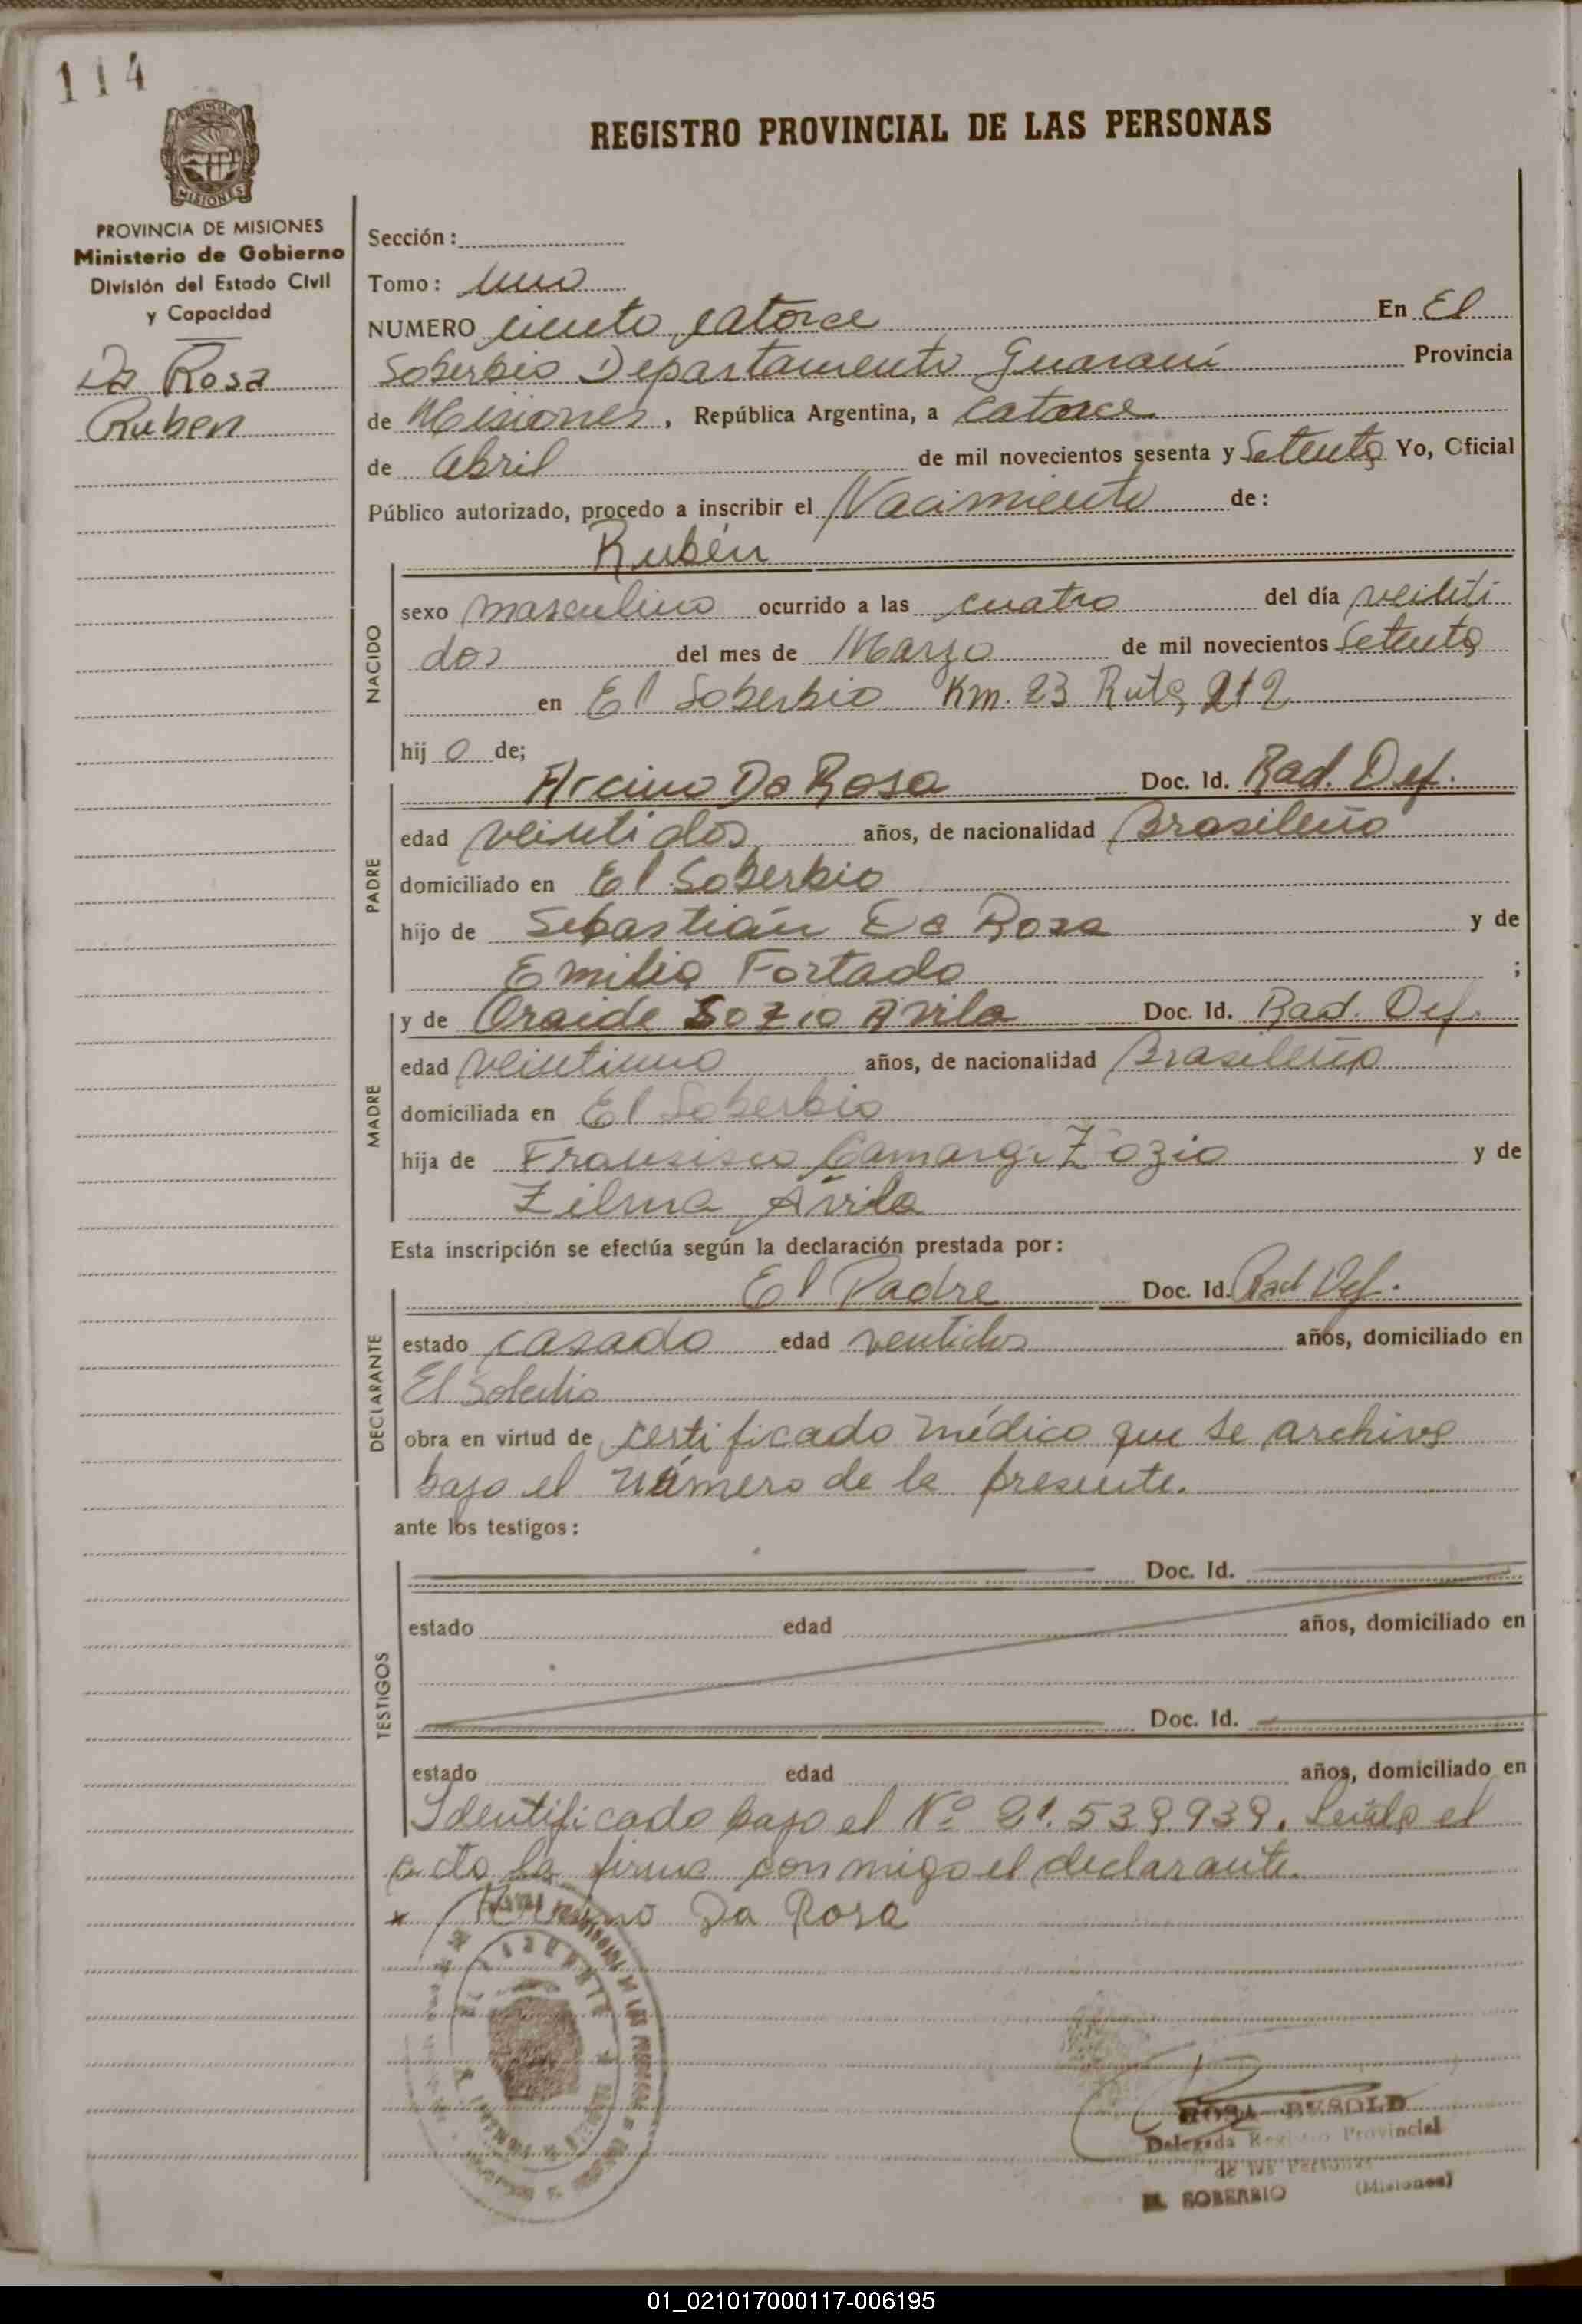 114
PROVINCIA DE MISIONES
Ministerio de Gobierno
División del Estado Civil
y Capacidad
Da Rosa
Ruben
REGISTRO PROVINCIAL DE LAS PERSONAS
Sección:
Tomo: uno
NUMERO ciento catorce En El
Soberbio Departamento Guaraní Provincia
de Misiones, República Argentina, a catorce
de abril de mil novecientos sesenta y Setenta Yo, Oficial
Público autorizado, procedo a inscribir el Nacimiento de:
Rubén
NACIDO
sexo masculino ocurrido a las cuatro del día veinti
dos del mes de Marzo de mil novecientos Setenta
en El Soberbio Km. 23 Ruta 212
hij o de;
PADRE
Arcino Da Rosa Doc. Id. Rad. Def.
edad veintidos años, de nacionalidad Brasileño
domiciliado en El Soberbio
hijo de Sebastián Da Rosa y de
Emilia Fortado ;
MADRE
y de Oraide Sozio Avila Doc. Id. Rad. Def.
edad veintiuno años, de nacionalidad Brasileña
domiciliada en El Soberbio
hija de Fransisco Camargo Zozio y de
Zilma Avila
Esta inscripción se efectúa según la declaración prestada por:
DECLARANTE
El Padre Doc. Id. Rad Def.
estado casado edad ventidos años, domiciliado en
El Soberbio
obra en virtud de certificado médico que se archiva
bajo el número de la presente.
ante los testigos:
TESTIGOS
Doc. Id.
estado edad años, domiciliado en
Doc. Id.
estado edad años, domiciliado en
Identificado bajo el Nº 21.539.939. Leída el
acta la firma conmigo el declarante.
x Da Rosa
ROSA BESOLD
Delegada Registro Provincial
de las Personas
EL SOBERBIO (Misiones)
01_021017000117-006195